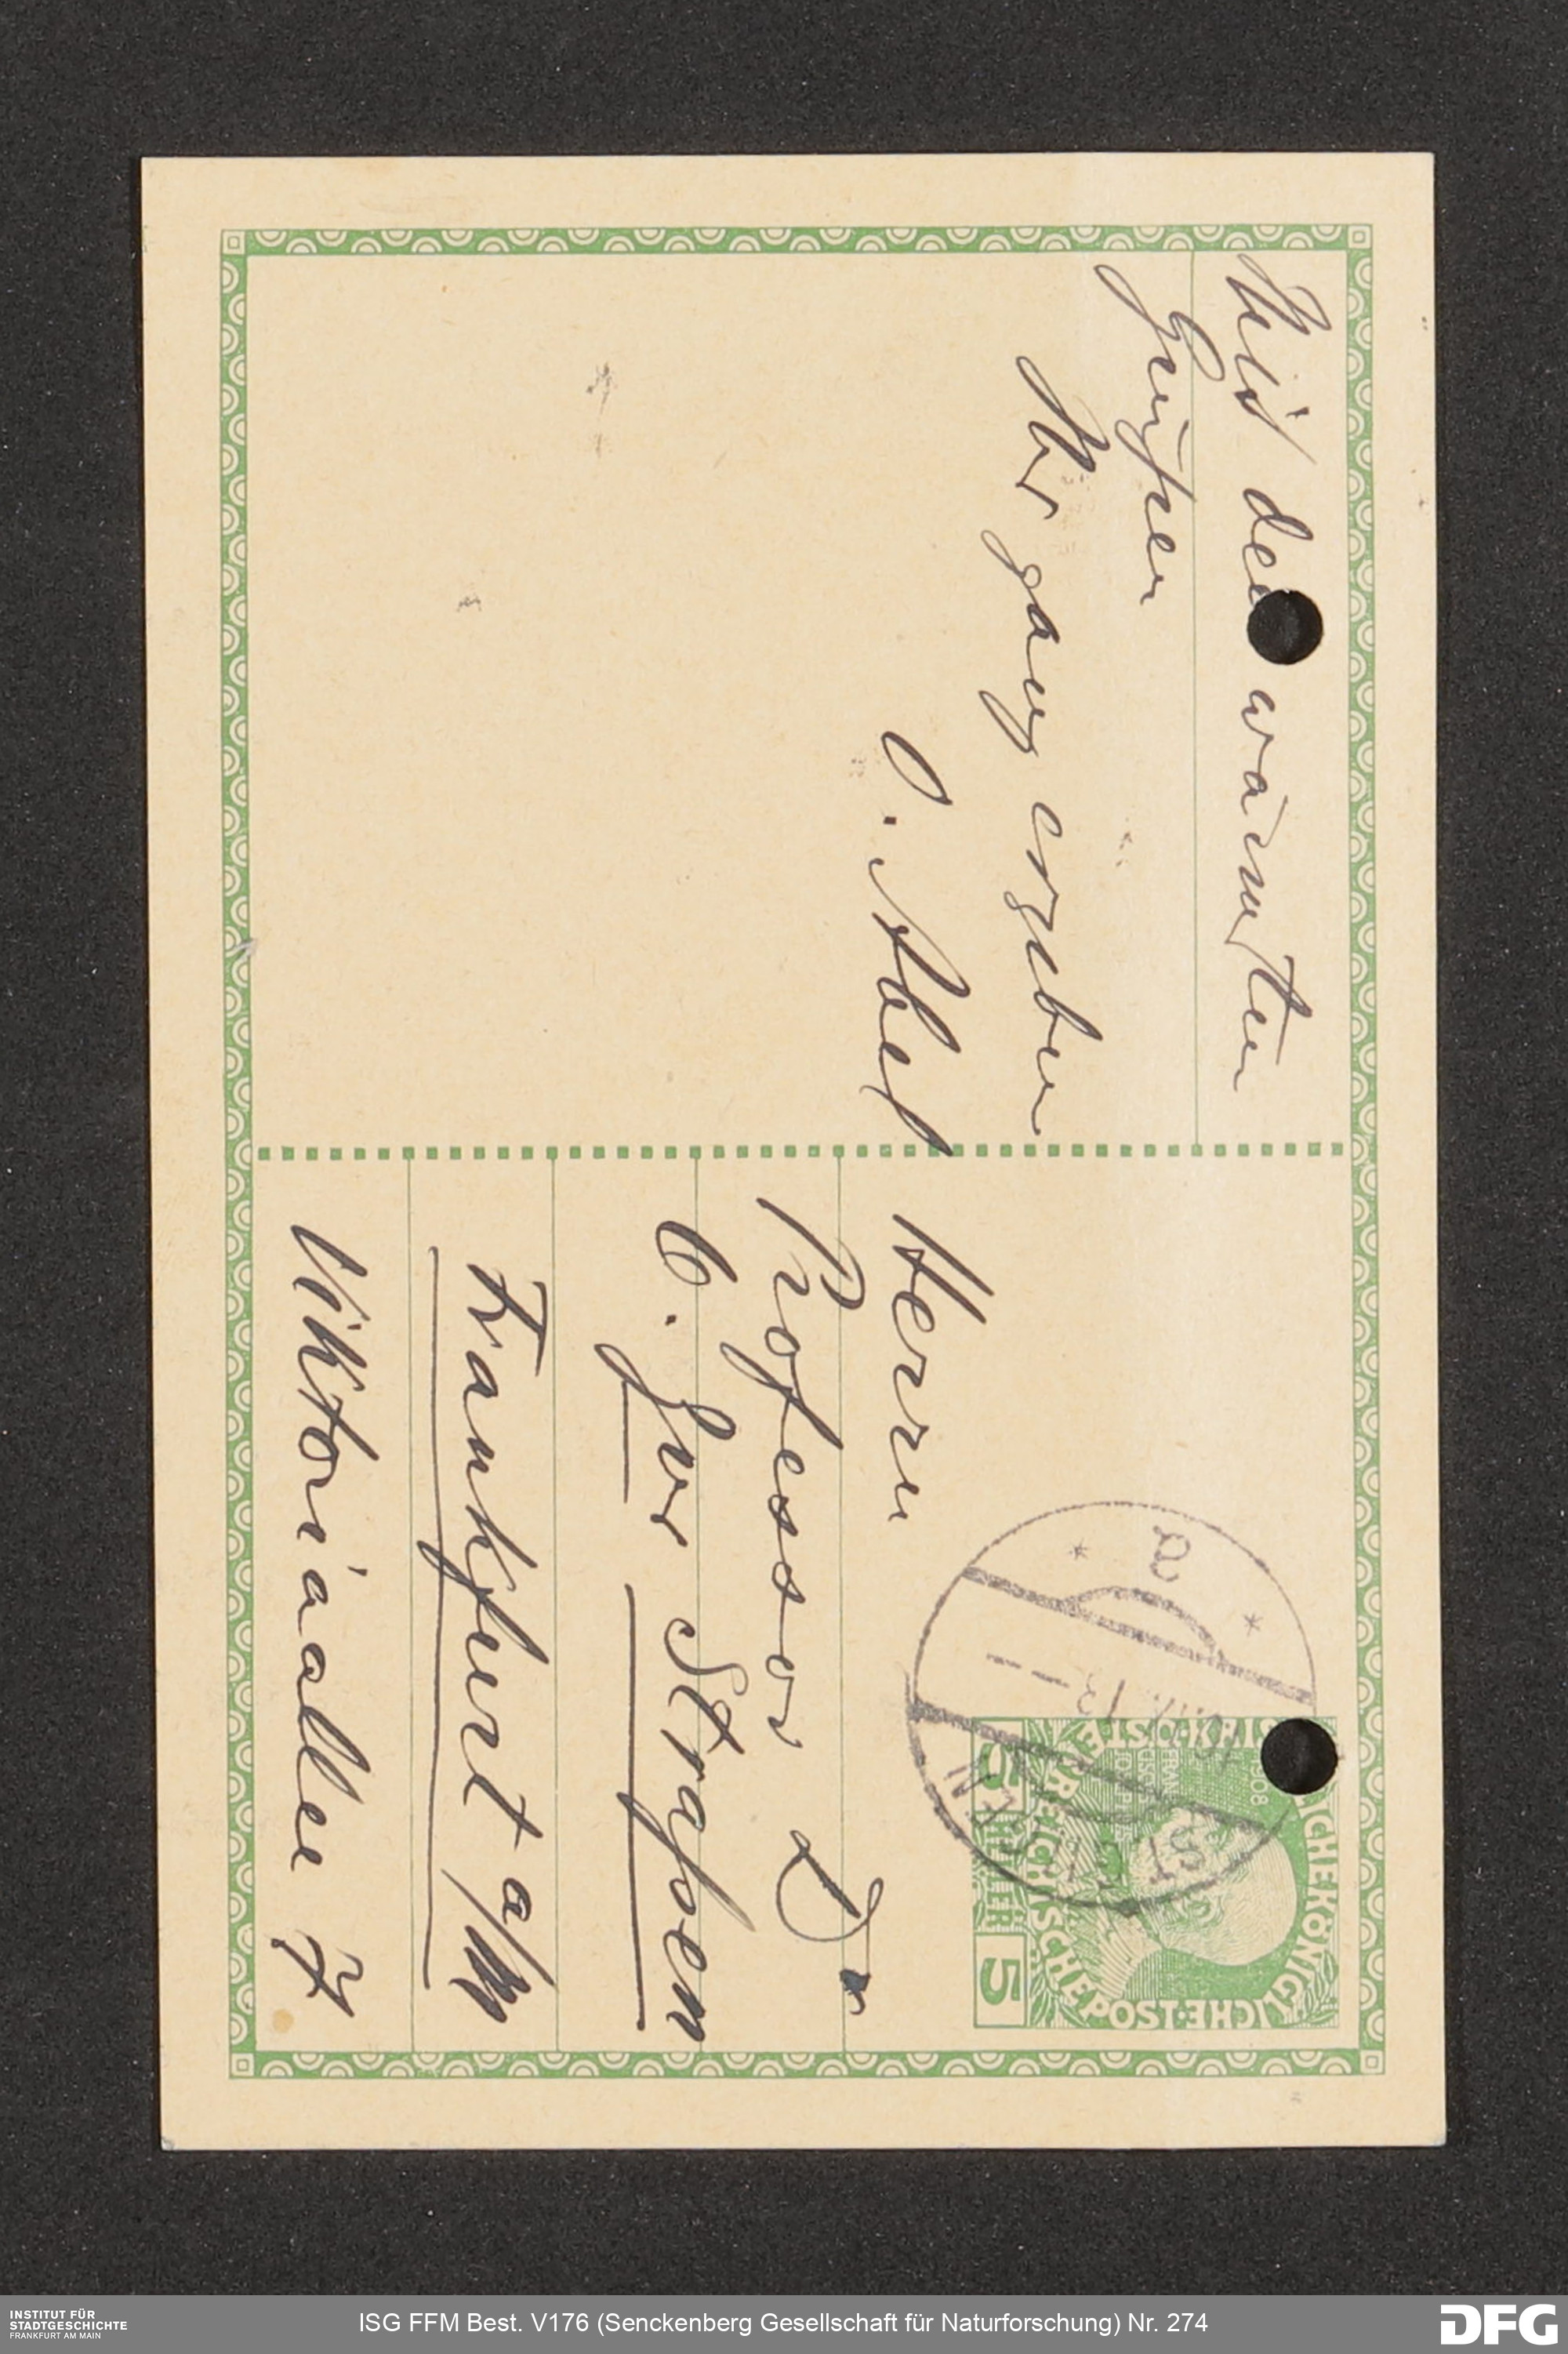 Mit den wärmsten
Grüßen
Ihr ganz ergebener
O. Abel
Herrn
Professor Dr
O. zur Straßen
Frankfurt a/M
Viktoriaallee 7
a
ÖSTERREICHISCHE POST
KAISERLICHE KÖNIGLICHE
1908
5 HELLER 5
INSTITUT FÜR
STADTGESCHICHTE
FRANKFURT AM MAIN
ISG FFM Best. V176 (Senckenberg Gesellschaft für Naturforschung) Nr. 274
DFG